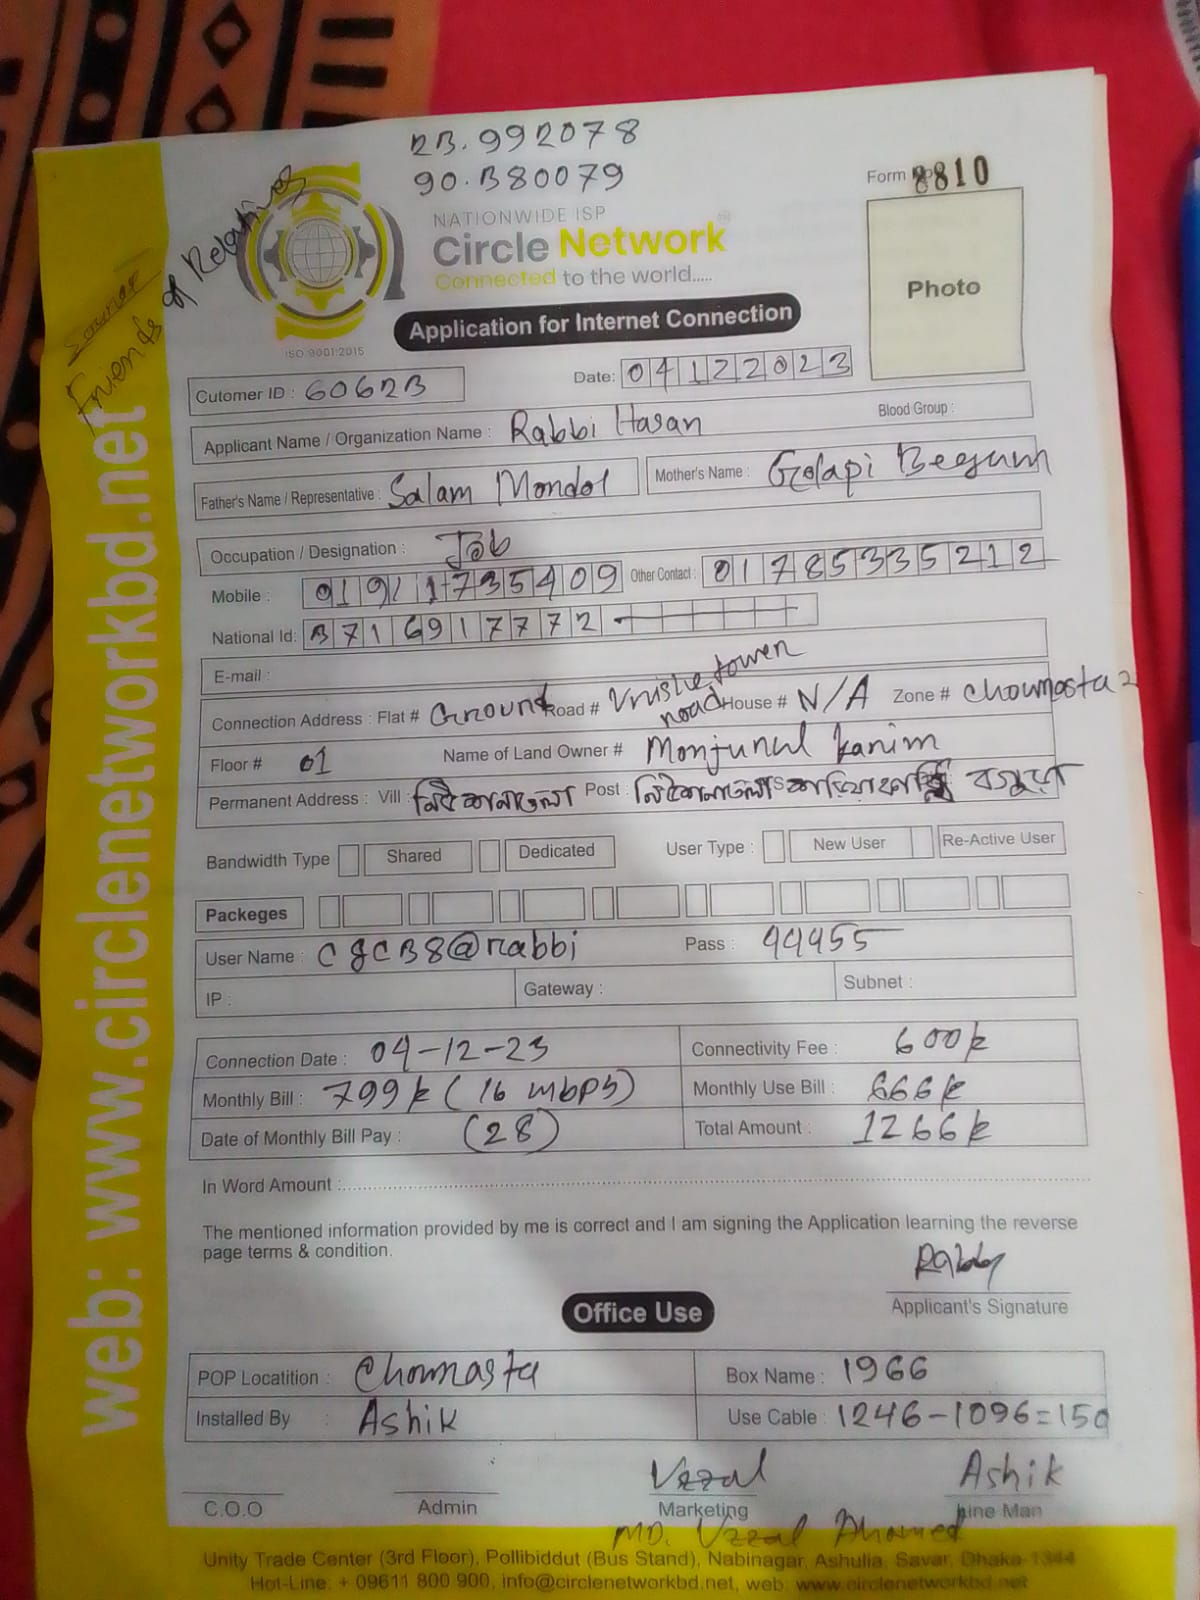 23.992078
90.380079
Form No 8810
NATIONWIDE ISP
Circle Network
Connected to the world.....
Source
Friends of Relatives
ISO 9001:2015
Photo
Application for Internet Connection
Cutomer ID : 60623
Date: 04122023
Applicant Name / Organization Name : Rabbi Hasan
Blood Group :
Father's Name / Representative : Salam Mondol
Mother's Name : Golapi Begum
Occupation / Designation : Job
Mobile : 01911735409 Other Contact : 01785335212
National Id: 3716917772
E-mail :
Connection Address : Flat # Ground Road # Vrishe tower road House # N/A Zone # Choumasta 2
Floor # 01 Name of Land Owner # Monjurul Karim
Permanent Address : Vill : Post : বগুড়া
Bandwidth Type Shared Dedicated User Type : New User Re-Active User
Packeges
User Name : CgCB8@rabbi Pass : 44455
IP : Gateway : Subnet :
Connection Date : 04-12-23 Connectivity Fee : 600k
Monthly Bill : 799k (16 mbps) Monthly Use Bill : 666k
Date of Monthly Bill Pay : (28) Total Amount : 1266k
In Word Amount :
The mentioned information provided by me is correct and I am signing the Application learning the reverse
page terms & condition.
Rabby
Applicant's Signature
Office Use
POP Locatition : Choumasta Box Name : 1966
Installed By : Ashik Use Cable : 1246-1096=150
Uzzal Ashik
C.O.O Admin Marketing Line Man
MD. Uzzal Ahamed
Unity Trade Center (3rd Floor), Pollibiddut (Bus Stand), Nabinagar, Ashulia, Savar, Dhaka-1344
Hot-Line: + 09611 800 900, info@circlenetworkbd.net, web: www.circlenetworkbd.net
web: www.circlenetworkbd.net